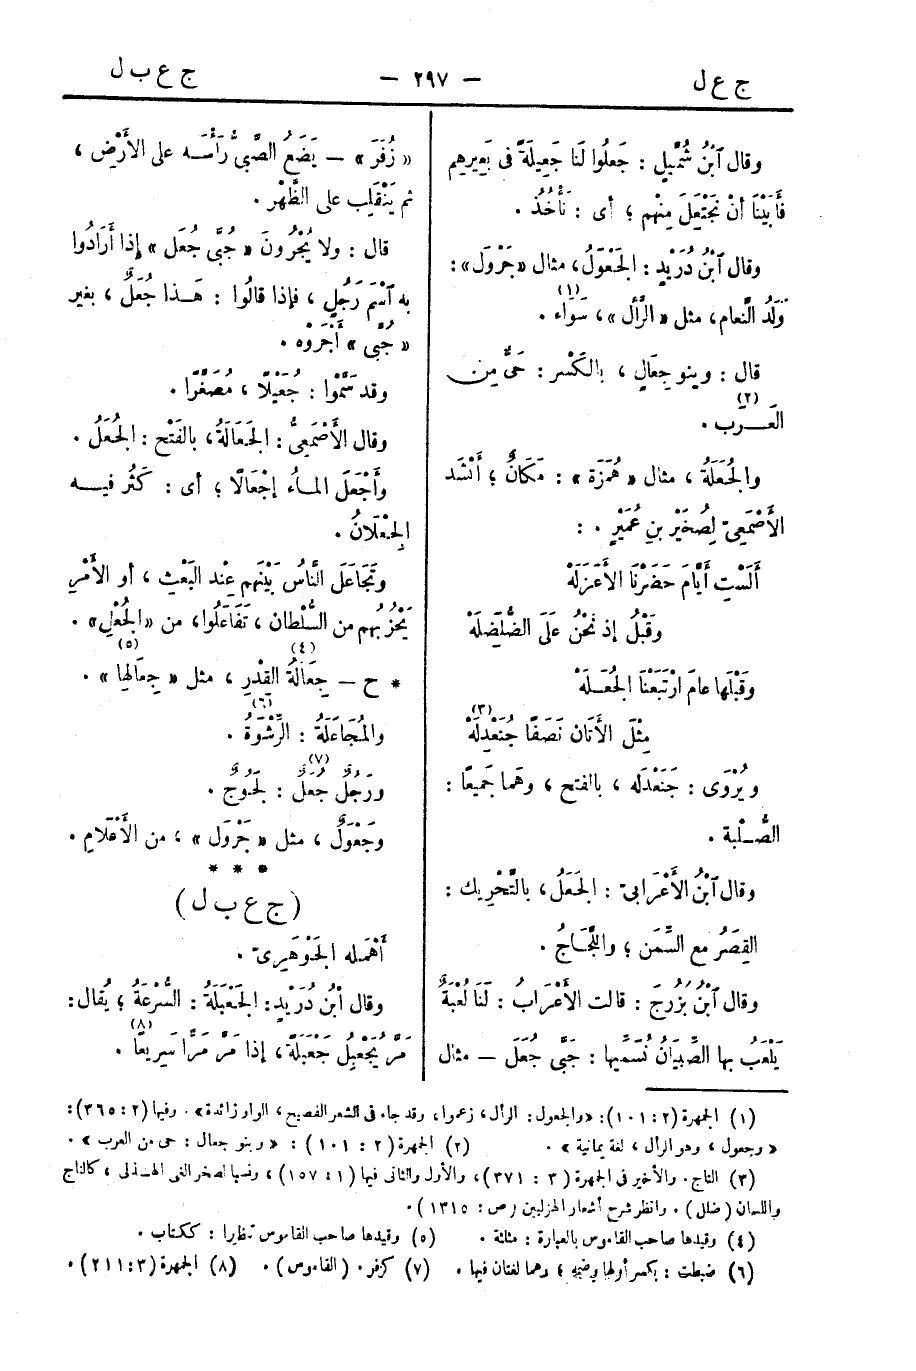 ج ع ل
— ٢٩٧ —
ج ع ب ل
وقال ٱبْنُ شُمَيْلٍ : جَعلُوا لَنا جَعِيلَةً فى بَعِيرِهم
فَأَبَيْنَا أنْ نَجْتَعِلَ مِنْهم ؛ أى : نَأْخُذُ .
وقال ٱبْنُ دُرَيْدٍ : الجَعْوَلُ ، مثال «جَرْول» :
وَلَدُ النَّعام ، مثل « الرَّأل » ، سَواء (١) .
قال : وبنو جِعَالٍ ، بالكَسْر : حَىٌّ مِن
العَـــرَب (٢) .
والجُعَلَةُ ، مثال « هُمَزَة » : مَكَانٌ ؛ أَنْشَد
الأَصْمَعِىّ لِصُخَيْر بنِ عُمَيْرٍ . :
أَلَسْتِ أَيَّامَ حَضَرْنَا الأَعْزَلَهْ
وَقَبْلُ إذ نَحْنُ عَلَى الضُّلَضِلَهْ
وَقَبْلَها عامَ ارْتَبَعْنَا الجُعَــلَهْ
مِثْلَ الأَتَان نَصَفًا جُنَعْدِلَهْ (٣)
ويُرْوَى : جَنَعْدَله ، بالفتح ، وهما جَمِيعًا :
الصُّـلْبة .
وقال ٱبْنُ الأَعْرابىّ : الجَعَلُ ، بالتَّحْرِيك :
القِصَرُ مع السِّمَن ؛ واللَّجَـاجُ .
وقال ٱبْنُ بُزُرْجَ : قالت الأَعْرَابُ : لَنا لُعْبَةٌ
يَلْعَبُ بها الصِّبيَانُ نُسَمِّيها : جَبَّى جُعَلَ — مثال
« زُفَرَ » — يَضَعُ الصَّبىُّ رَأْسَـه على الأَرْضِ ،
ثم يَنْقَلِب على الظَّهْرِ .
قال : ولا يُجْرُونَ « جُبَّى جُعَل » إذا أَرَادُوا
به ٱسْمَ رَجُلٍ ، فإذا قالُوا : هَـذا جُعَلٌ ، بغير
« جُبَّى » أَجْرَوْه .
وقد سَمَّوا : جُعَيْلًا ، مُصَغَّرًا .
وقال الأَصْمَعِىُّ : الجَعَالَةُ ، بالفَتْح : الجُعَلُ .
وأَجْعَلَ المـاءُ إجْعَالًا ؛ أى : كَثُر فيـــه
الجِعْلَانُ .
وتَجَاعَلَ النَّاسُ بَيْنَهم عند البَعْثِ ، أو الأمْرِ
يَحْزُبُهم من السُّلْطان ، تَفَاعَلُوا ، من «الجُعْلِ» .
* ح — جِعَالَةُ القِدْرِ (٤) ، مثل « جِعَالها » (٥) .
والمُجَاعَلَةُ : الرِّشْوَةُ (٦) .
ورَجُلٌ جُعَلٌ (٧) : لَجُوجٌ .
وجَعْوَلٌ ، مثل « جَرْول » ، من الأَعْلام .
* * *
( ج ع ب ل )
أَهْمَله الجَوْهَرِىّ .
وقال ٱبْنُ دُرَيْدٍ : الجَعْبَلَةُ : السُّرْعَةُ ؛ يُقال :
مَرَّ يُجَعْبِلُ جَعْبَلَةً ، إذا مَرَّ مَرًّا سَرِيعًا (٨) .
(١) الجمهرة (٢ : ١٠١) : «والجعول : الرأل ، زعموا ، وقد جاء فى الشعر الفصيح ، الواو زائدة» . وفيها (٢ : ٣٦٥) :
« وجعول ، وهو الرأل ، لغة يمانية » . (٢) الجمهرة (٢ : ١٠١) : « وبنو جعال : حى من العرب » .
(٣) التاج . والأخير فى الجمهرة (٣ : ٣٧١) ، والأول والثانى فيها (١ : ١٥٧) ، ونسبا لصخر الغى الهـذلى ، كالتاج
واللسان (ضلل) . وانظر شرح أشعار الهزليين (ص : ١٣١٥) .
(٤) وقيدها صاحب القاموس بالعبارة : مثلثة . (٥) وقيدها صاحب القاموس تنظيرا : ككتاب .
(٦) ضبطت : بكسر أولها وضمه ؛ وهما لغتان فيها . (٧) كزفر . (القاموس) . (٨) الجمهرة (٣ : ٢١١) .